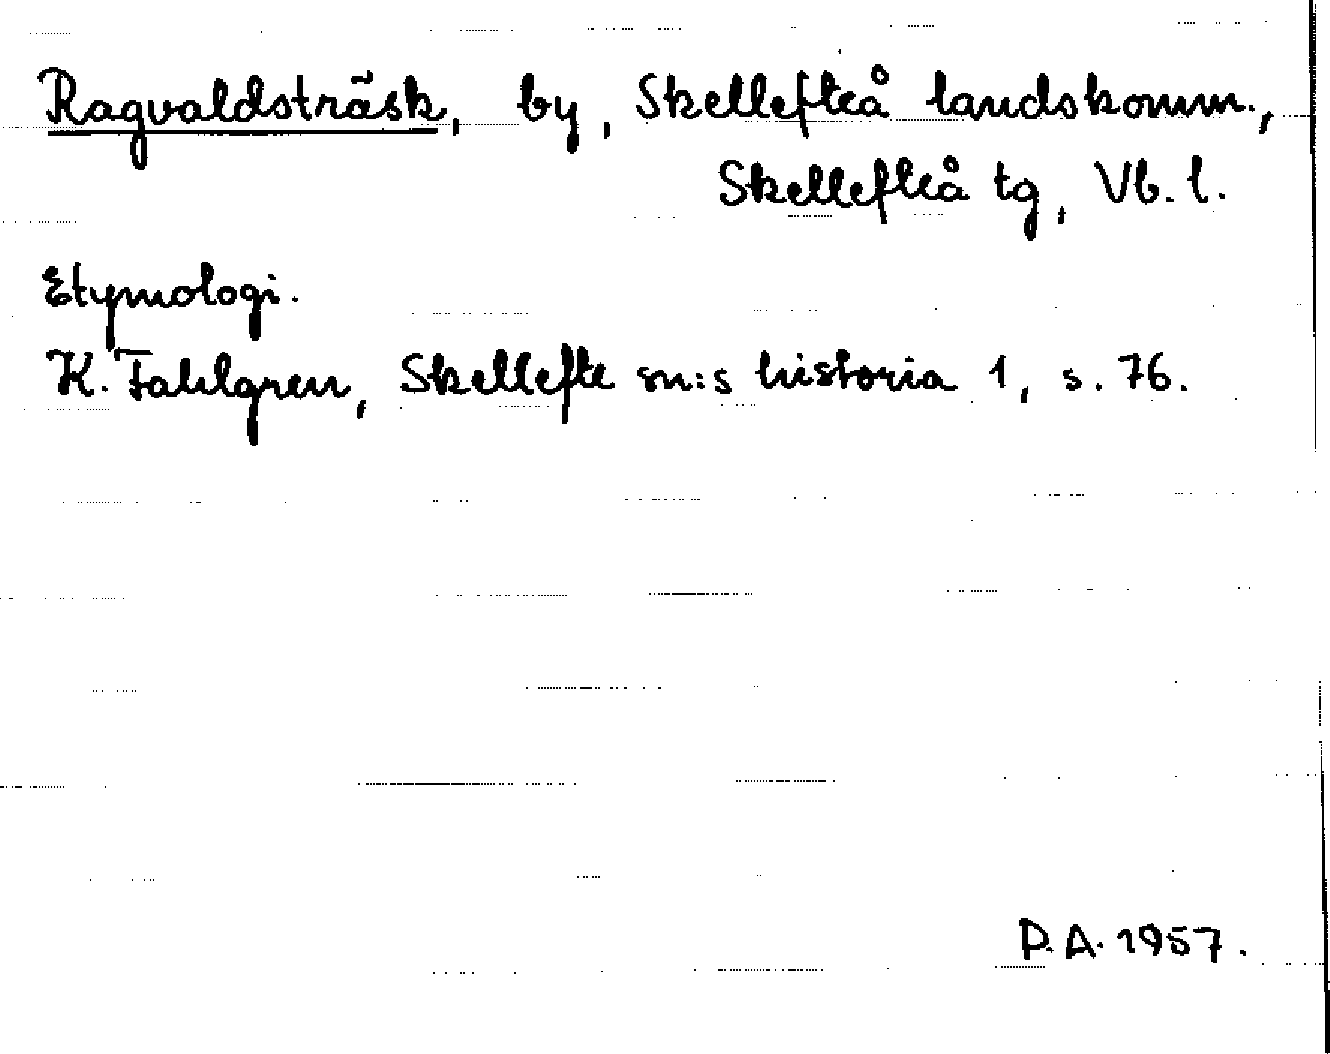 Ragvaldsträsk, by, Skellefteå landskomm.,
Skellefteå tg, Vb. l.
Etymologi.
K. Fahlgren, Skellefte sn:s historia 1, s. 76.
P.A. 1957.